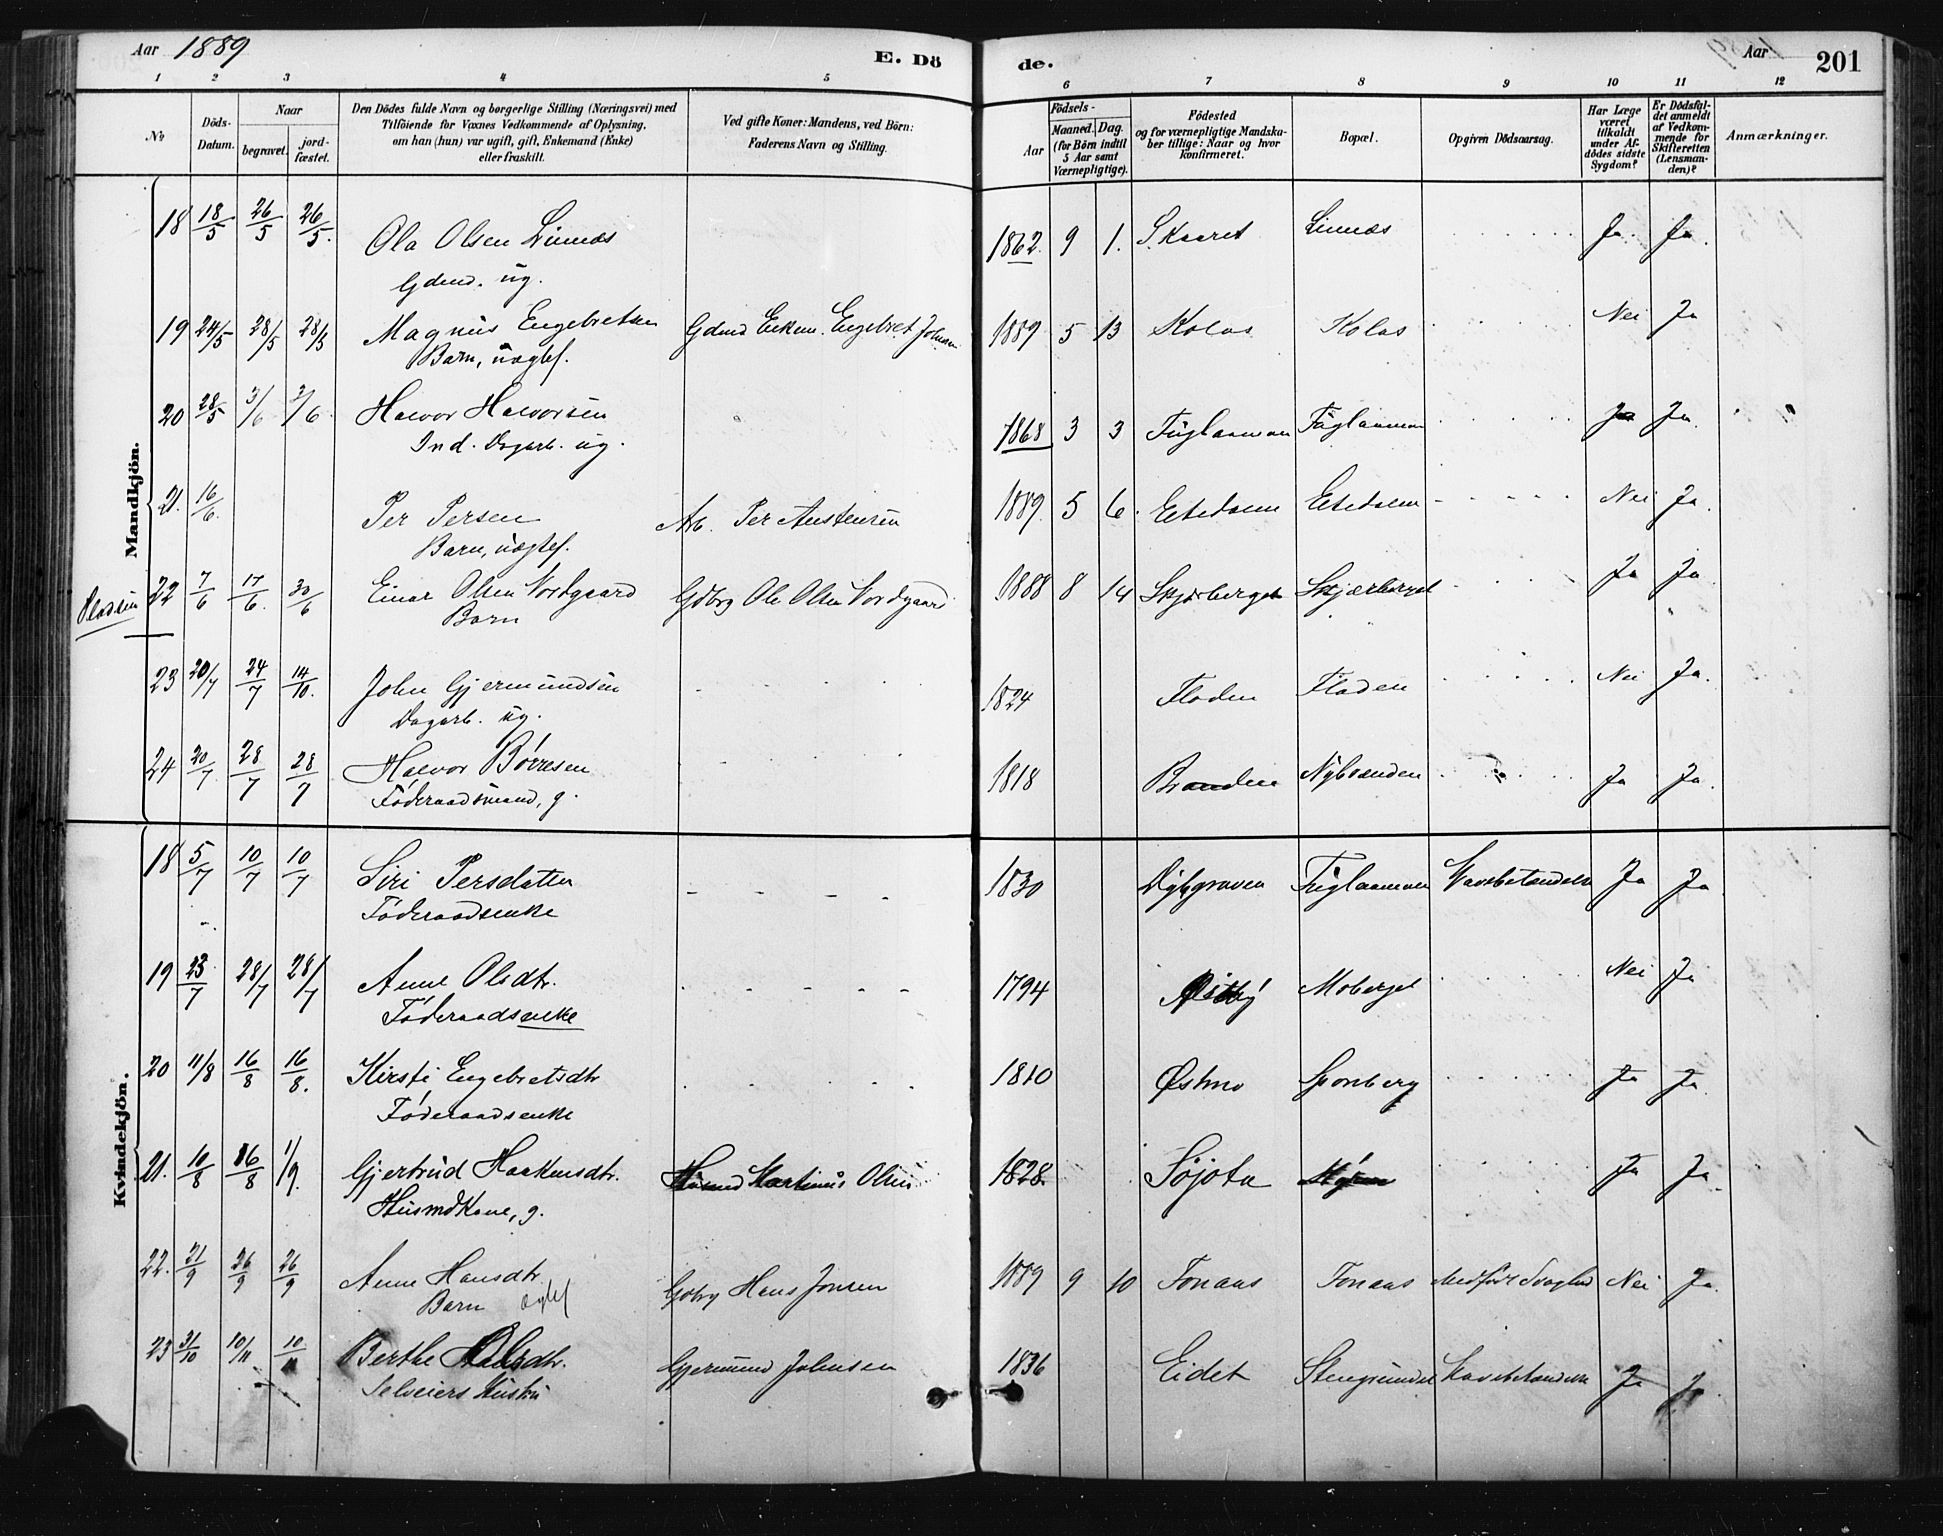 Aar 1889 E. Dö de. Aar 201
1 2 3 4 5 6 7 8 9 10 11 12
No
Döds-Datum.
Naar
begravet.
jord-fæstet.
Den Dödes fulde Navn og borgerlige Stilling (Næringsvei) med
Tilföiende for Voxnes Vedkommende af Oplysning,
om han (hun) var ugift, gift, Enkemand (Enke)
eller fraskilt.
Ved gifte Koner: Mandens, ved Börn:
Faderens Navn og Stilling.
Födsels-
Aar
Maaned. Dag.
(for Börn indtil
5 Aar samt
Værnepligtige).
Födested
og for værnepligtige Mandska-
ber tillige: Naar og hvor
konfirmeret.
Bopæl.
Opgiven Dödsaarsag.
Har Læge
været
tilkaldt
under Af-
dödes sidste
Sygdom?
Er Dödsfal-
det anmeldt
af Vedkom-
mende for
Skifteretten
(Lensman-
den)?
Anmærkninger.
Mandkjön.
18 18/5 26/5 26/5. Ola Olsen Linnæs 1862. 9 1. Skaaret Linnæs Ja. Ja.
Gdmd. ug.
19 24/5 28/5 28/5 Magnus Engebretsen Gdmd Enkem. Engebret Johnsen 1889 5 13 Kolos Kolos Nei Ja
Barn, uægtef.
20 28/5 3/6 Halvor Halvorsen 1868 3 3 Fuglaamoen Fuglaamoen Ja Ja.
Ind. Dagarb. ug.
21. 16/6. Per Persen Arb. Per Austensen 1889. 5 6. Nei Ja.
Barn, uægtef.
22 7/6 17/6. 30/6 Einar Olsen Nordgaard Gdbrg Ole Olsen Nordgaard 1888 8 14 Skjærberget Skjærberget Ja Ja.
Barn
23 20/7 24/7 14/10. John Gjermundsen 1824 Floden Floden Nei Ja.
Dagarb. ug.
24 20/7 28/7 28/7 Halvor Børresen 1818 Branden Nybranden Ja Ja.
Føderaadsmand, g.
Kvindekjön.
18 5/7 10/7 10/7 Siri Persdatter 1830 Dybgraven Fuglaamoen Mavebetændelse Ja Ja
Føderaadsenke
19 23/7 28/7 28/7 Anne Olsdtr. 1794 Moberget Nei Ja
Føderaadsenke
20 11/8 16/8 16/8. Kirsti Engebretsdtr 1810 Østmo Sponberg Ja Ja.
Føderaadsenke
21. 10/8 16/8 1/9. Gjertrud Haakensdtr. Martinus Olsen 1828. Søjota Ja Ja.
Husmdkone, g.
22. 21/9 26/9 26/9 Anne Hansdtr. Gdbrg Hans Jonsen 1889 9 10 Tonaas Tonaas Medfødt Svaghed Nei Ja.
Barn ægtef
23 31/10 10/11 10/11 Berthe Olsdtr. Gjermund Johnsen 1836 Eidet Stengrundet Mavebetændelse Ja Ja
Selveiers Hustru